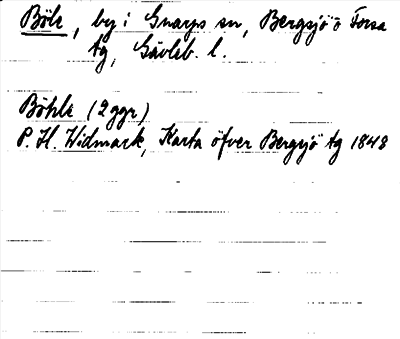 Böle, by i Gnarps sn, Bergsjö o Forsa
tg, Gävleb. l.
Böhle (2 ggr)
P. H. Widmark, Karta öfver Bergsjö tg 1848